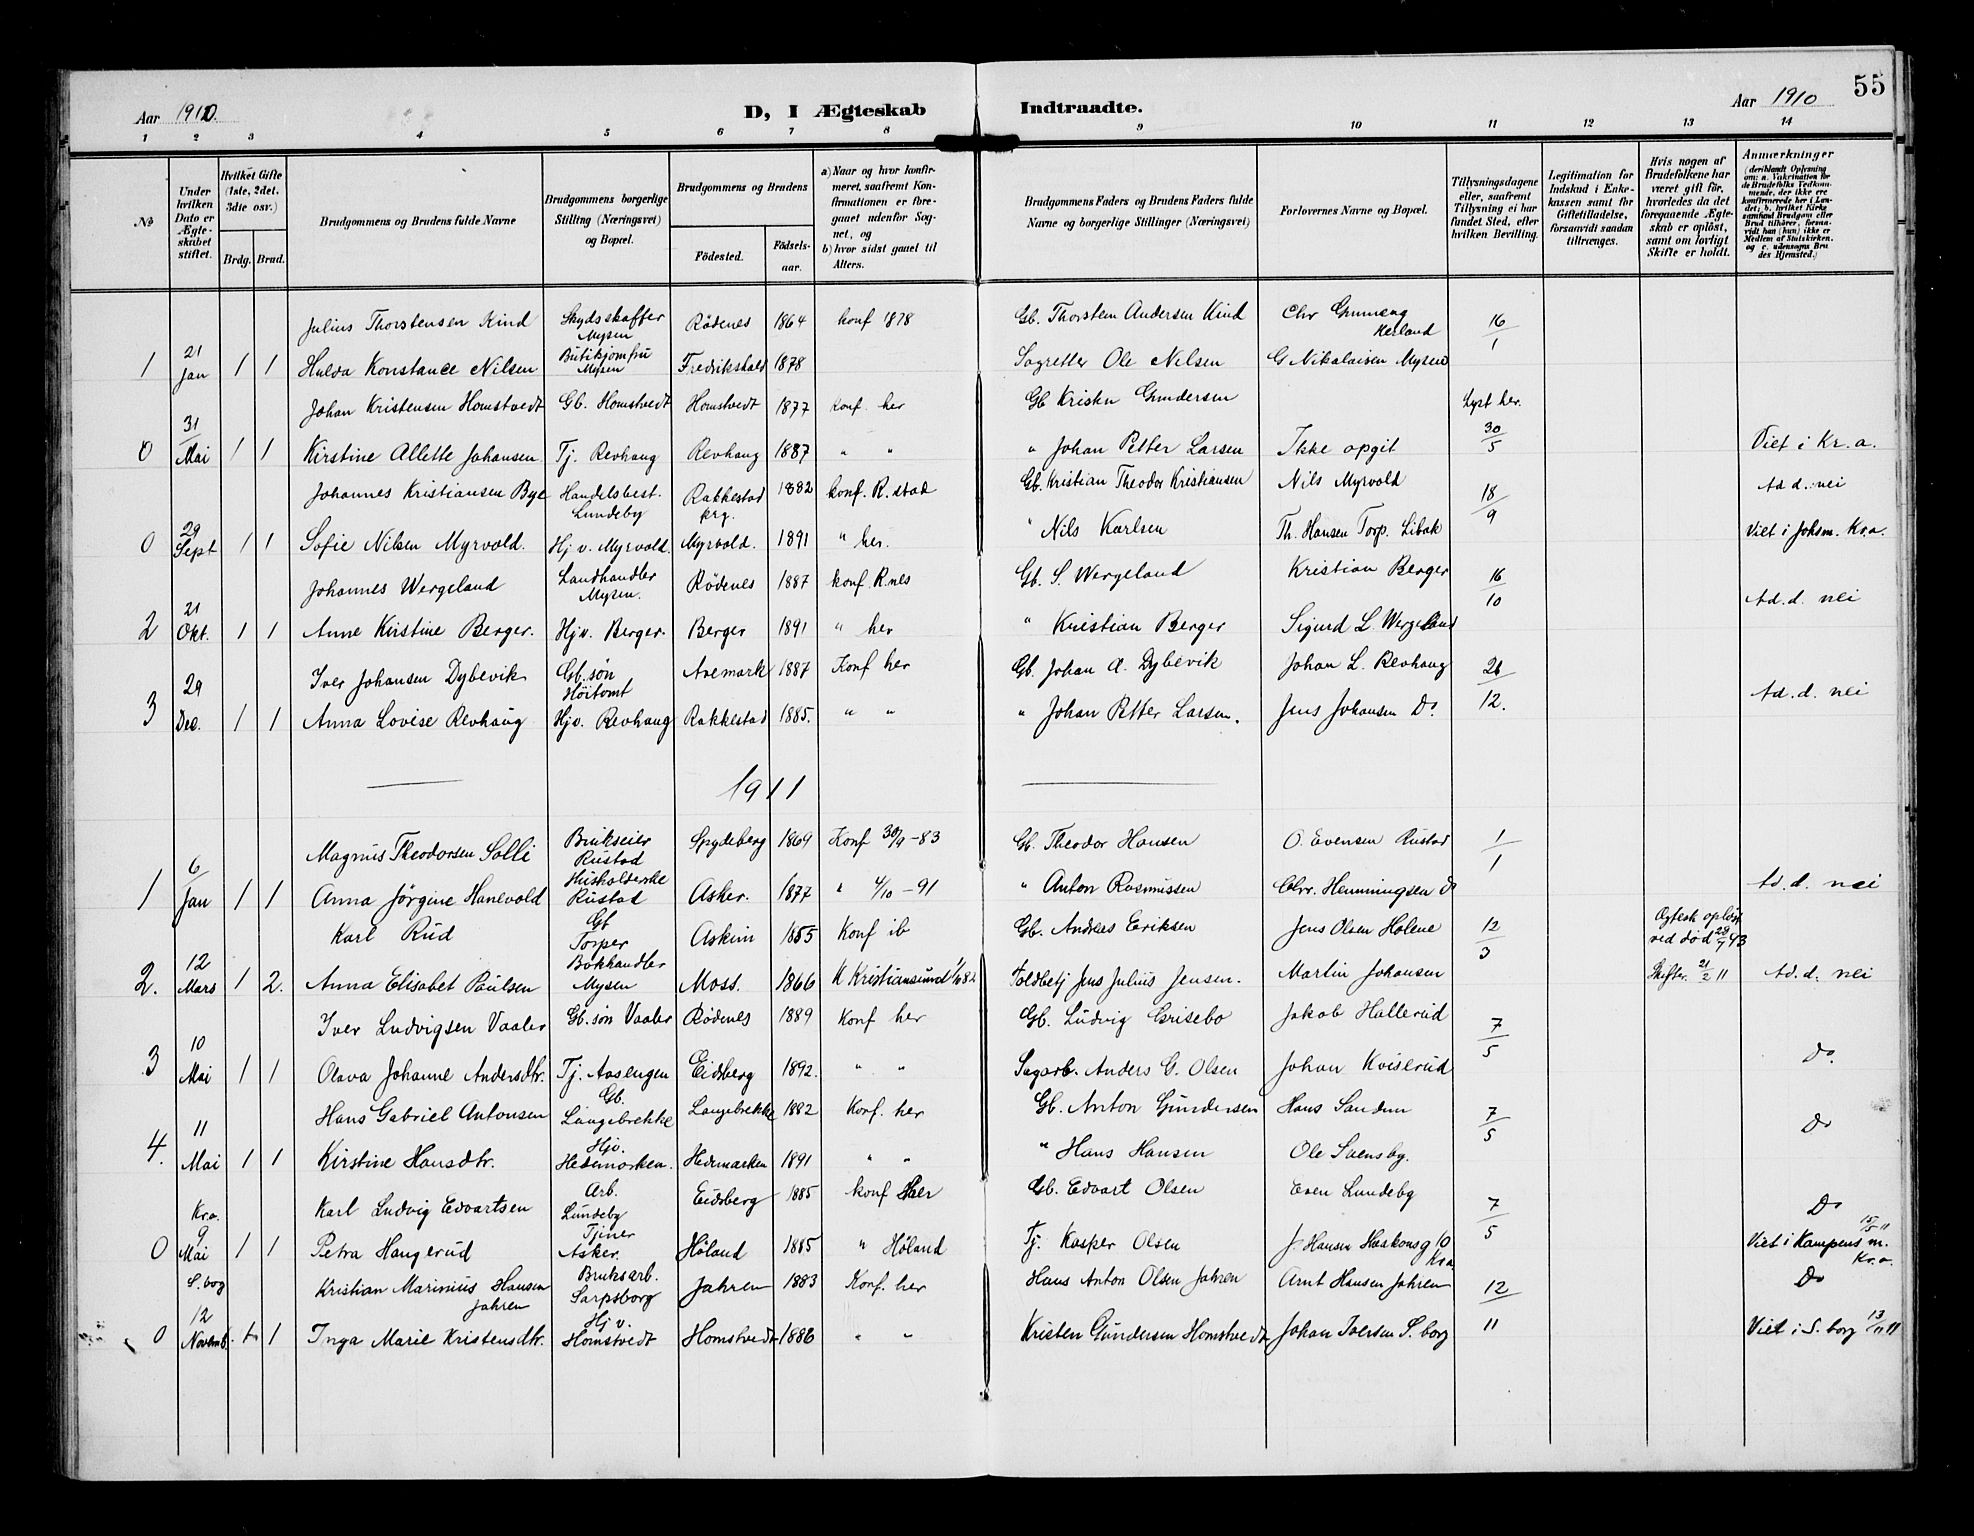 55
Aar 1910. D, I Ægteskab Indtraadte. Aar 1910
1 2 3 4 5 6 7 8 9 10 11 12 13 14
No
Under hvilken Dato er Ægteskabet stiftet.
Hvilket Gifte (1ste, 2det, 3die osv.)
Brdg. Brud.
Brudgommens og Brudens fulde Navne
Brudgommens borgerlige Stilling (Næringsvei) og Bopæl.
Brudgommens og Brudens
Födested. Födselsaar.
a) Naar og hvor konfirmeret, saafremt Konfirmationen er foregaaet udenfor Sognet, og b) hvor sidst gaaet til Alters.
Brudgommens Faders og Brudens Faders fulde Navne og borgerlige Stillinger (Næringsvei)
Forlovernes Navne og Bopæl.
Tillysningsdagene eller, saafremt Tillysning ei har fundet Sted, efter hvilken Bevilling.
Legitimation for Indskud i Enkekassen samt for Giftetilladelse, forsaavidt saadan tiltrænges.
Hvis nogen af Brudefolkene har været gift för, hvorledes da det foregaaende Ægteskab er oplöst, samt om lovligt Skifte er holdt.
Anmærkninger (deriblandt Oplysning om: a. Vakcination for de Brudefolks Vedkommende, der ikke ere konfirmerede her i Landet; b. hvilket Kirkesamfund Brudgom eller Brud tilhörer, forsaavidt han (hun) ikke er Medlem af Statskirken, og c. udensogns Brudes Hjemsted.)
Julius Thorstensen Kind Skydsskaffer Mysen Rödenes 1864 konf 1878 Gb. Thorsten Andersen Kind Chr Kerland 16/1
1 21 Jan 1 1 Hulda Konstance Nilsen Butikjomfru Mysen Fredrikshald 1878 Sagretter Ole Nilsen G Nikolaisen Mysen
Johan Kristensen Homstvedt Gb. Homstvedt Homstvedt 1877 konf. her Gb Kristen Gundersen Lyst her. 30/5
0 31 Mai 1 1 Kirstine Allette Johansen Tj. Revhaug Revhaug 1887 " " " Johan Petter Larsen Ikke opgit Viet i Kr.a.
Johannes Kristiansen Bye Handelsbest. Lundeby Rakkestad prg. 1882 konf. R.stad Gb. Kristian Theodor Kristiansen Nils Myrvold 18/9 Ad d.: nei
0 29 Sept 1 1 Sofie Nilsen Myrvold. Hj v. Myrvold. Myrvold. 1891 " her. " Nils Karlsen Th. Hansen Torp. Libak Viet i Johsm. Kr.a.
Johannes Wergeland Landhandler Mysen. Rödenes 1887 konf. R.nes Gb. S. Wergeland Kristian Berger 16/10 Ad.d. nei
2 21 Okt. 1 1 Anne Kirstine Berger. Hjv. Berger. Berger 1891 " her " Kristian Berger Sigurd L. Wergeland
Iver Johansen Dybevik Gb. søn Høitomt Aremark 1887 Konf her Gb. Johan A. Dybevik Johan L. Revhaug 26/12.
3 29 Dec. 1 1 Anna Lovise Revhaug Hjv. Revhaug Rakkestad 1885. " " " Johan Petter Larsen. Jens Johansen Do. Ad.d. nei
1911
Magnus Theodorsen Solli Brukseier Rustad Spydeberg 1869 Konf 30/9 -83 Gb. Theodor Hansen O. Evensen Rustad 1/1
1 6/Jan 1 1 Anna Jörgine Hanevold Husholderske Rustad Asker. 1877 " 4/10 -91 " Anton Rasmussen Chr. Henningsen Do Ad.d. nei
Karl Rud Gb Torper Askim 1855 Konf ib Gb. Andreas Eriksen Jens Olsen Holene 12/3 Ægtesk opløst ved død
2. 12 Mars 1 2. Anna Elisabet Paulsen Bokhandler Mysen Moss. 1866 K Kristiansund Toldbetj Jens Julius Jensen. Martin Johansen Skifter. 21/2 11 Ad.d. nei
Iver Ludvigsen Vaaler Gb. søn Vaaler Rödenes 1889 Konf her Gb. Ludvig Grisebo Jakob Hallerud 7/5
3 10 Mai 1 1 Olava Johanne Andersdtr. Tj. Aasengen Eidsberg 1892. " " Sagarb. Anders G. Olsen Johan Kviserud Do.
Hans Gabriel Antonsen Gb. Langebrekke Langebrekke 1882 Konf. her Gb. Anton Gundersen Hans Sandem 7/5
4. 11 Mai 1 1 Kirstine Hansdtr. Hjv. Hedemarken. Hedemarken 1891 " " " Hans Hansen Ole Svensby. Do
Karl Ludvig Edvartsen Arb. Lundeby Eidsberg 1885 konf Her Gb. Edvart Olsen Even Lundeby 7/5 Do
0 Kr.a. 9 Mai 1 1 Petra Haugerud Tjener Asker. Høland 1885 " Høland Tj. Kasper Olsen J. Hansen Haakonsg 10 Kra Viet i Kampens m. Kr.a.
Kristian Marinius Hansen Jahren Bruksarb. Sarpsborg Jahren 1883 Konf. her Hans Anton Olsen Jahren Arnt Hansen Jahren 12/11 Do
0 S.borg 12 Novemb. 1 1 Inga Marie Kristensdtr. Hjv. Homstvedt Homstvedt 1886 " " Kristen Gundersen Homstvedt Johan Iversen S.borg Viet i S.borg 13/11 11